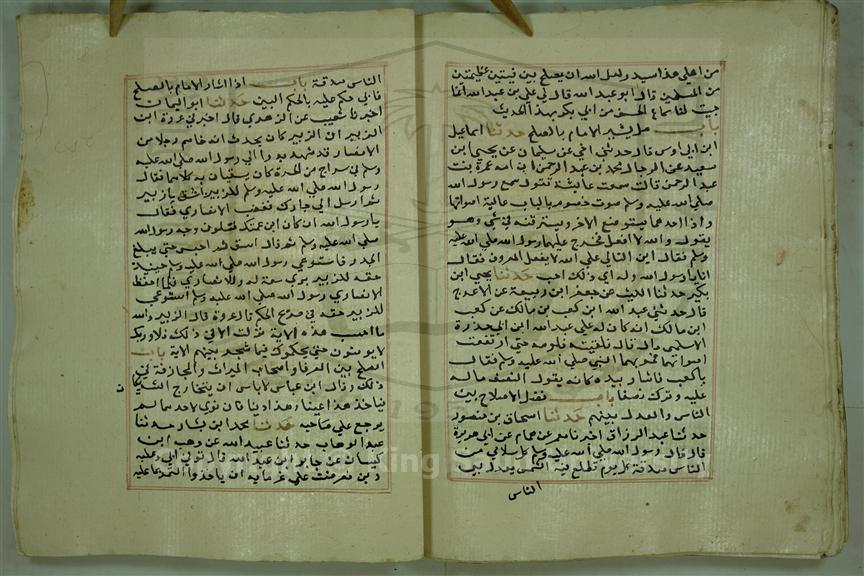 من اهلي هذا سيد ولعل الله ان يصلح بين فيتين عظيمتين
من المسلمين قال ابو عبد الله قال لي علي بن عبد الله انما
ثبت لنا سماع الحسن من ابي بكرة بهذا الحديث
باب هل يشير الامام بالصلح حدثنا اسماعيل
ابن ابي اويس قال حدثني اخي عن سليمان عن يحيى ابن
سعيد عن ابي الرجال محمد بن عبد الرحمن ان امه عمرة بنت
عبد الرحمن قالت سمعت عائشة تقول سمع رسول الله
صلى الله عليه وسلم صوت خصوم بالباب عالية اصواتها
واذا احدهما يستوضع الاخر ويسترفقه في شي وهو
يقول والله لا افعل فخرج عليهما رسول الله صلى الله عليه
وسلم فقال اين المتالي على الله لا يفعل المعروف فقال
انا يا رسول الله وله اي ذلك احب حدثنا يحيى ابن
بكير حدثنا الليث عن جعفر ابن ربيعة عن الاعرج
قال حدثني عبد الله ابن كعب بن مالك عن كعب
ابن مالك انه كان له على عبد الله ابن ابي حدرد
الاسلمي مال قال فلقيته فلزمه حتى ارتفعت
اصواتهما فمر بهما النبي صلى الله عليه وسلم فقال
يا كعب فاشار بيده كانه يقول النصف ماله
عليه وترك نصفا باب فضل الاصلاح بين
الناس والعدل بينهم حدثنا اسحاق بن منصور
حدثنا عبد الرزاق اخبرنا معمر عن همام عن ابي هريرة
قال قال رسول الله صلى الله عليه وسلم كل سلامى من
الناس صدقة كل يوم تطلع فيه الشمس يعدل بين
الناس
الناس صدقة باب اذا اشار الامام بالصلح
فابى حكم عليه بالحكم البين حدثنا ابو اليمان
اخبرنا شعيب عن الزهري قال اخبرني عروة ابن
الزبير ان الزبير كان يحدث انه خاصم رجلا من
الانصار قد شهد بدرا الى رسول الله صلى الله عليه
وسلم في شراج من الحرة كانا يسقيان به كلاهما فقال
رسول الله صلى الله عليه وسلم للزبير اسق يا زبير
ثم ارسل الى جارك فغضب الانصاري فقال
يا رسول الله ان كان ابن عمتك فتلون وجه رسول الله
صلى الله عليه وسلم ثم قال اسق ثم احبس حتى يبلغ
الجدر فاستوعى رسول الله صلى الله عليه وسلم حينئذ
حقه للزبير
سعة له وللانصاري فلما احفظ
الانصاري رسول الله صلى الله عليه وسلم استوعى
للزبير حقه في صريح الحكم قال عروة قال الزبير والله
ما احسب هذه الاية نزلت الا في ذلك فلا وربك
لا يومنون حتى يحكموك فيما شجر بينهم الاية باب
الصلح بين الغرما واصحاب الميراث والمجازفة في
ذلك وقال ابن عباس لا باس ان يتخارج الشريكان
فياخذ هذا عينا وهذا دينا فان توي لاحدهما لم
يرجع على صاحبه حدثنا محمد ابن بشار حدثنا
عبد الوهاب حدثنا عبيد الله عن وهب ابن
كيسان عن جابر ابن عبد الله قال توفي ابي وعليه
دين فعرضت على غرمايه ان ياخذوا التمر بما عليه